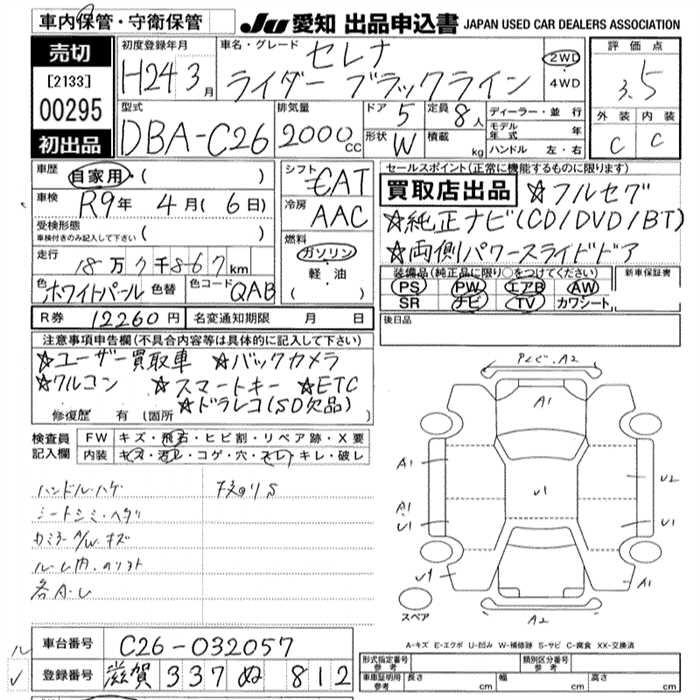 車内保管・守衛保管 JU 愛知 出品申込書 JAPAN USED CAR DEALERS ASSOCIATION
売切
[2133]
00295
初出品
初度登録年月 車名・グレード セレナ 評価点
H24 3月 ライダー ブラックライン 2WD ・ 4WD 3.5
型式 排気量 ドア 5 定員 8人 ディーラー・並行 外装 内装
DBA-C26 2000cc 形状 W 積載 kg モデル年式 年 C C
ハンドル 左・右
車歴 自家用・( ) シフト CAT セールスポイント(正常に機能するものに限ります)
車検 R9年 4月(6日) 冷房 AAC 買取店出品 ☆フルセグ
受検形態 車検付きのみ記入して下さい ( ) ☆純正ナビ(CD/DVD/BT)
走行 18万7千867km 燃料 ガソリン・軽・油 ( ) ☆両側パワースライドドア
色 ホワイトパール 色替 色コード QAB 装備品(純正品に限り○をつけてください) 新車保証書
PS PW エアB AW
SR ナビ TV カワシート
R券 12260円 名変通知期限 月 日 後日品
注意事項申告欄(不具合内容等は具体的に記入して下さい)
☆ユーザー買取車 ☆バックカメラ
☆クルコン ☆スマートキー ☆ETC
☆ドラレコ(SD欠品)
修復歴 有(箇所 )
検査員記入欄 FW キズ・飛石・ヒビ割・リペア跡・X要
内装 キズ・汚レ・コゲ・穴・スレ・キレ・破レ
ハンドル・ハゲ
シートシミ・ヘタリ
各A・U
A2
A1
A1 U1 U2
A1
U1 U1
A1
A2
スペア
A-キズ E-エクボ U-凹み W-補修跡 S-サビ C-腐食 XX-交換済
車台番号 C26-032057
登録番号 滋賀 337 ぬ 812
形式指定番号 参考 類別区分番号 参考
車庫証明用 参考 長さ cm 幅 cm 高さ cm